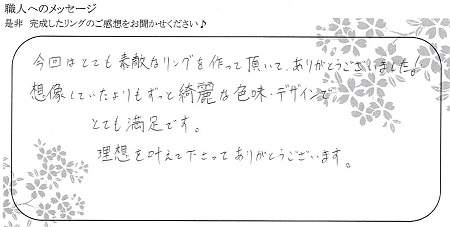 職人へのメッセージ
是非 完成したリングのご感想をお聞かせください♪
今回はとても素敵なリングを作って頂いて、ありがとうございました!
想像していたよりもずっと綺麗な色味・デザインで
とても満足です。
理想を叶えて下さってありがとうございます。